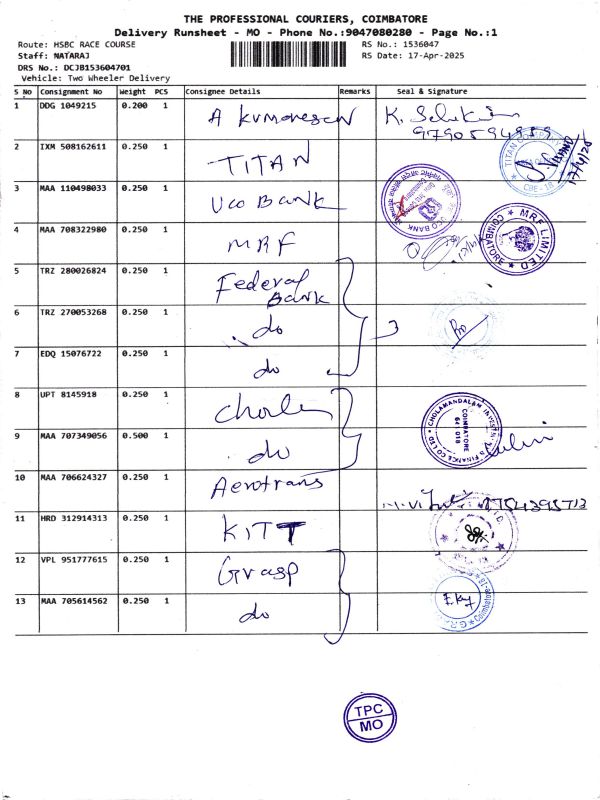 THE PROFESSIONAL COURIERS, COIMBATORE
Delivery Runsheet - MO - Phone No.:9047080280 - Page No.:1
Route: HSBC RACE COURSE RS No.: 1536047
Staff: NATARAJ RS Date: 17-Apr-2025
DRS No.: DCJB153604701
Vehicle: Two Wheeler Delivery
S No Consignment No Weight PCS Consignee Details Remarks Seal & Signature
1 DDG 1049215 0.200 1 A Kumaresan K.
9790594959
2 IXM 508162611 0.250 1 TITAN TITAN COMPANY CBE-18 17/4/25
3 MAA 110498033 0.250 1 UCO BANK UCO BANK
4 MAA 708322980 0.250 1 MRF MRF LIMITED COIMBATORE
5 TRZ 280026824 0.250 1 Federal Bank
6 TRZ 270053268 0.250 1 do 3
7 EDQ 15076722 0.250 1 do
8 UPT 8145918 0.250 1 Chola CHOLAMANDALAM INVESTMENT & FINANCE CO LTD COIMBATORE 641 018
9 MAA 707349056 0.500 1 do
10 MAA 706624327 0.250 1 Aerotrans
11 HRD 312914313 0.250 1 KITT
12 VPL 951777615 0.250 1 Grasp Coimbatore-18
13 MAA 705614562 0.250 1 do
TPC
MO